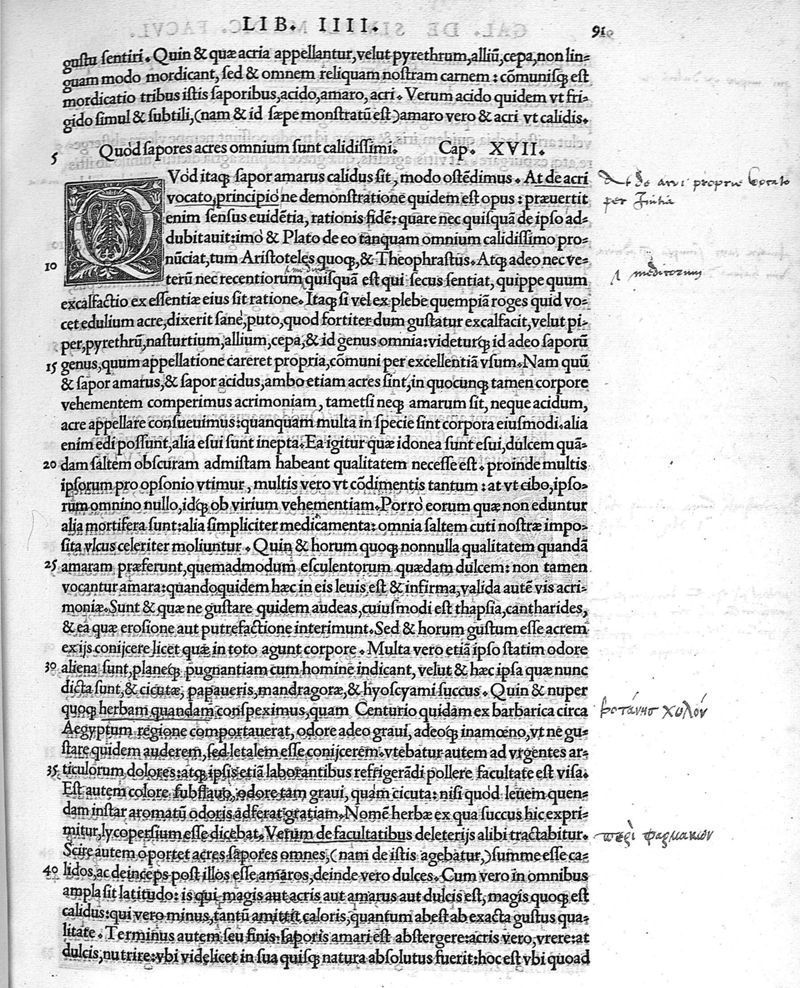 LIB. IIII. 91
gustu sentiri. Quin & quæ acria appellantur, velut pyrethrum, alliũ, cepa, non lin-
guam modo mordicant, sed & omnem reliquam nostram carnem: cõmunisq; est
mordicatio tribus istis saporibus, acido, amaro, acri. Verum acido quidem vt fri-
gido simul & subtili, (nam & id sæpe monstratũ est) amaro vero & acri vt calidis.
5 Quòd sapores acres omnium sunt calidissimi. Cap. XVII.
QVòd itaq; sapor amarus calidus sit, modo ostẽdimus. At de acri
vocato, principio ne demonstratione quidem est opus: præuertit
enim sensus euidẽtia, rationis fidẽ: quare nec quisquã de ipso ad-
dubitauit: imò & Plato de eo tanquam omnium calidissimo pro-
10 nũciat, tum Aristoteles quoq;, & Theophrastus. Atq; adeo nec ve-
terũ nec recentiorum quisquã est qui secus sentiat, quippe quum
excalfactio ex essentiæ eius sit ratione. Itaq; si vel ex plebe quempiã roges quid vo-
cet edulium acre, dixerit sanè, puto, quod fortiter dum gustatur excalfacit, velut pi-
per, pyrethrũ, nasturtium, allium, cepa, & id genus omnia: videturq; id adeo saporũ
15 genus, quum appellatione careret propria, cõmuni per excellentiã vsum. Nam quũ
& sapor amarus, & sapor acidus, ambo etiam acres sint, in quocunq; tamen corpore
vehementem comperimus acrimoniam, tametsi neq; amarum sit, neque acidum,
acre appellare consueuimus: quanquam multa in specie sint corpora eiusmodi. alia
enim edi possunt, alia esui sunt inepta. Ea igitur quæ idonea sunt esui, dulcem quã-
20 dam saltem obscuram admistam habeant qualitatem necesse est. proinde multis
ipsorum pro opsonio vtimur, multis vero vt cõdimentis tantum: at vt cibo, ipso-
rum omnino nullo, idq; ob virium vehementiam. Porrò eorum quæ non eduntur
alia mortifera sunt: alia simpliciter medicamenta: omnia saltem cuti nostræ impo-
sita vlcus celeriter moliuntur. Quin & horum quoq; nonnulla qualitatem quandã
25 amaram præferunt, quemadmodum esculentorum quædam dulcem: non tamen
vocantur amara: quandoquidem hæc in eis leuis est & infirma, valida autẽ vis acri-
moniæ. Sunt & quæ ne gustare quidem audeas, cuiusmodi est thapsia, cantharides,
& ea quæ erosione aut putrefactione interimunt. Sed & horum gustum esse acrem
ex ijs conijcere licet quæ in toto agunt corpore. Multa vero etiã ipso statim odore
30 aliena sunt, planeq; pugnantiam cum homine indicant, velut & hæc ipsa quæ nunc
dicta sunt, & cicutæ, papaueris, mandragoræ, & hyoscyami succus. Quin & nuper
quoq; herbam quandam conspeximus, quam Centurio quidam ex barbarica circa
Aegyptum regione comportauerat, odore adeo graui, adeoq; inamœno, vt ne gu-
stare quidem auderem, sed letalem esse conijcerem. vtebatur autem ad vrgentes ar-
35 ticulorum dolores: atq; ipsis etiã laborantibus refrigerãdi pollere facultate est visa.
Est autem colore subflauo, odore tam graui, quàm cicuta: nisi quod leuem quen-
dam instar aromatũ odoris adferat gratiam. Nomẽ herbæ ex qua succus hic expri-
mitur, lycopersium esse dicebat. Verum de facultatibus deleterijs alibi tractabitur.
Scire autem oportet acres sapores omnes, (nam de istis agebatur,) summe esse ca-
40 lidos, ac deinceps post illos esse amaros, deinde vero dulces. Cum vero in omnibus
ampla sit latitudo: is qui magis aut acris aut amarus aut dulcis est, magis quoq; est
calidus: qui vero minus, tantũ amittit caloris, quantum abest ab exacta gustus qua-
litate. Terminus autem seu finis saporis amari est abstergere: acris vero, vrere: at
dulcis, nutrire: vbi videlicet in sua quisq; natura absolutus fuerit: hoc est vbi quoad
At de acri proprie vocato
per
medicorum
βοτάνησ
περὶ φαρμακῶν